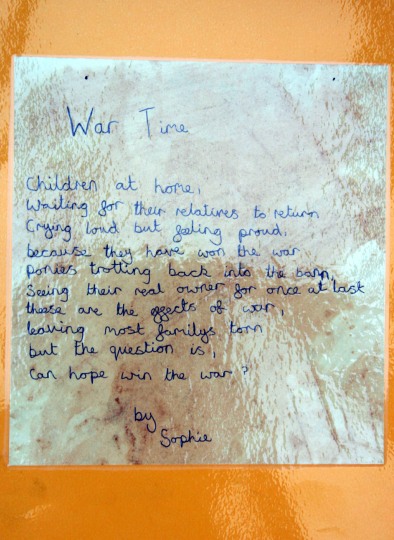 War Time
Children at home,
Waiting for their relatives to return
Crying loud but feeling proud,
because they have won the war
ponies trotting back into the barn,
Seeing their real owner for once at last
these are the effects of war,
leaving most familys torn
but the question is,
Can hope win the war?
by
Sophie